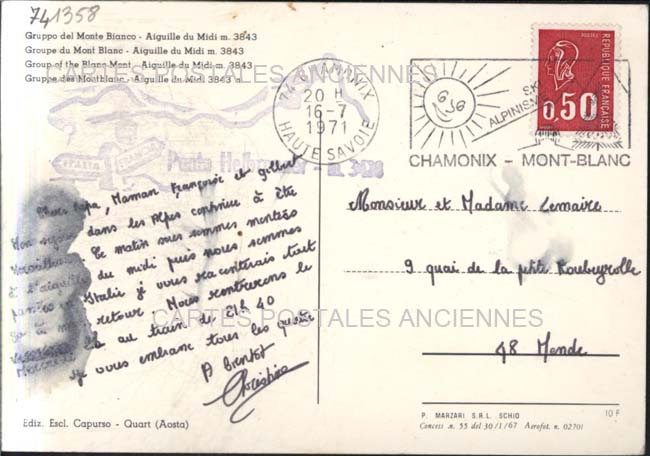 741358
Gruppo del Monte Bianco - Aiguille du Midi m. 3843
Groupe du Mont Blanc - Aiguille du Midi m. 3843
Group of the Blanc Mont - Aiguille du Midi m. 3843
Gruppe des Montblanc - Aiguille du Midi m. 3843 m.
CARTES POSTALES ANCIENNES
74 CHAMONIX
20 H
16-7
1971
HAUTE SAVOIE
SKI
ALPINISME
CHAMONIX - MONT-BLANC
POSTES
REPUBLIQUE FRANÇAISE
0,50
ITALIA
FRANCIA
Punta Helbronner - m. 3462
Chers Papa, Maman Françoise et Gilbert
Mon séjour dans les Alpes continue à être
merveilleux Ce matin nous sommes montées
à l'aiguille du midi puis nous sommes
Italie je vous raconterais tout
retour. Nous rentrerons le
au train de 21h 40
je vous embrasse tous les quatre
A Bientôt
Christine
Monsieur et Madame Lemaire
9 quai de la petite Roubeyrolle
48 Mende
CARTES POSTALES ANCIENNES
Ediz. Escl. Capurso - Quart (Aosta)
P. MARZARI S.R.L. SCHIO
Concess. n. 55 del 30/1/67 Aerofot. n. 02701
10 F